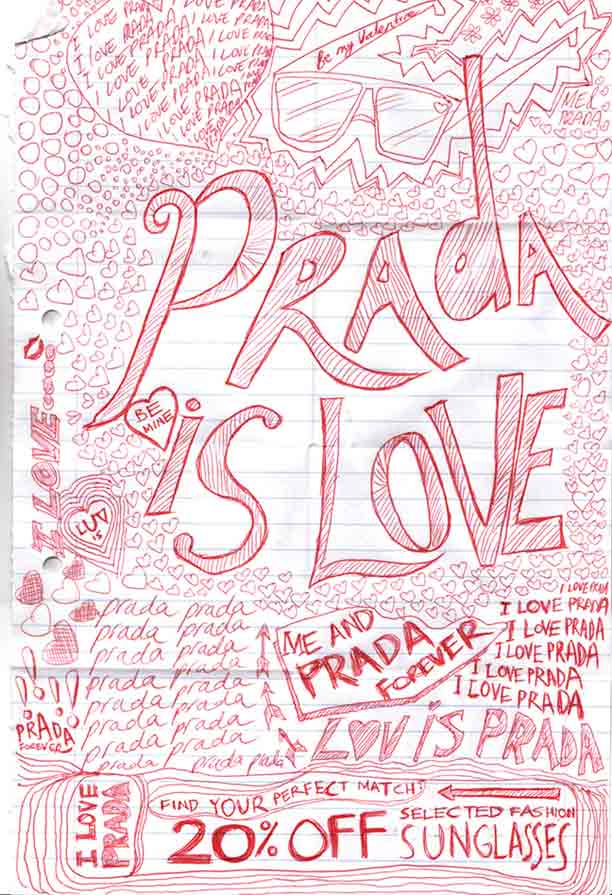 I LOVE PRADA
I LOVE PRADA I LOVE PRADA
I LOVE PRADA I LOVE PRADA
I LOVE PRADA I LOVE PRADA
I LOVE PRADA
I LOVE PRADA
I LOVE PRADA
Be my Valentine
PRADA
PRada
BE
MINE
is LOVE
I LOVE
LUV
is
prada prada
prada prada
prada prada
prada prada
prada prada
prada prada
prada prada
prada prada
prada prada prada
PRADA
FOREVER
ME AND
PRADA
FOREVER
I LOVE PRADA
I LOVE PRADA
I LOVE PRADA
I LOVE PRADA
I LOVE PRADA
I LOVE PRADA
LOV iS PRADA
I LOVE
PRADA
FIND YOUR PERFECT MATCH?
20% OFF
SELECTED FASHION
SUNGLASSES